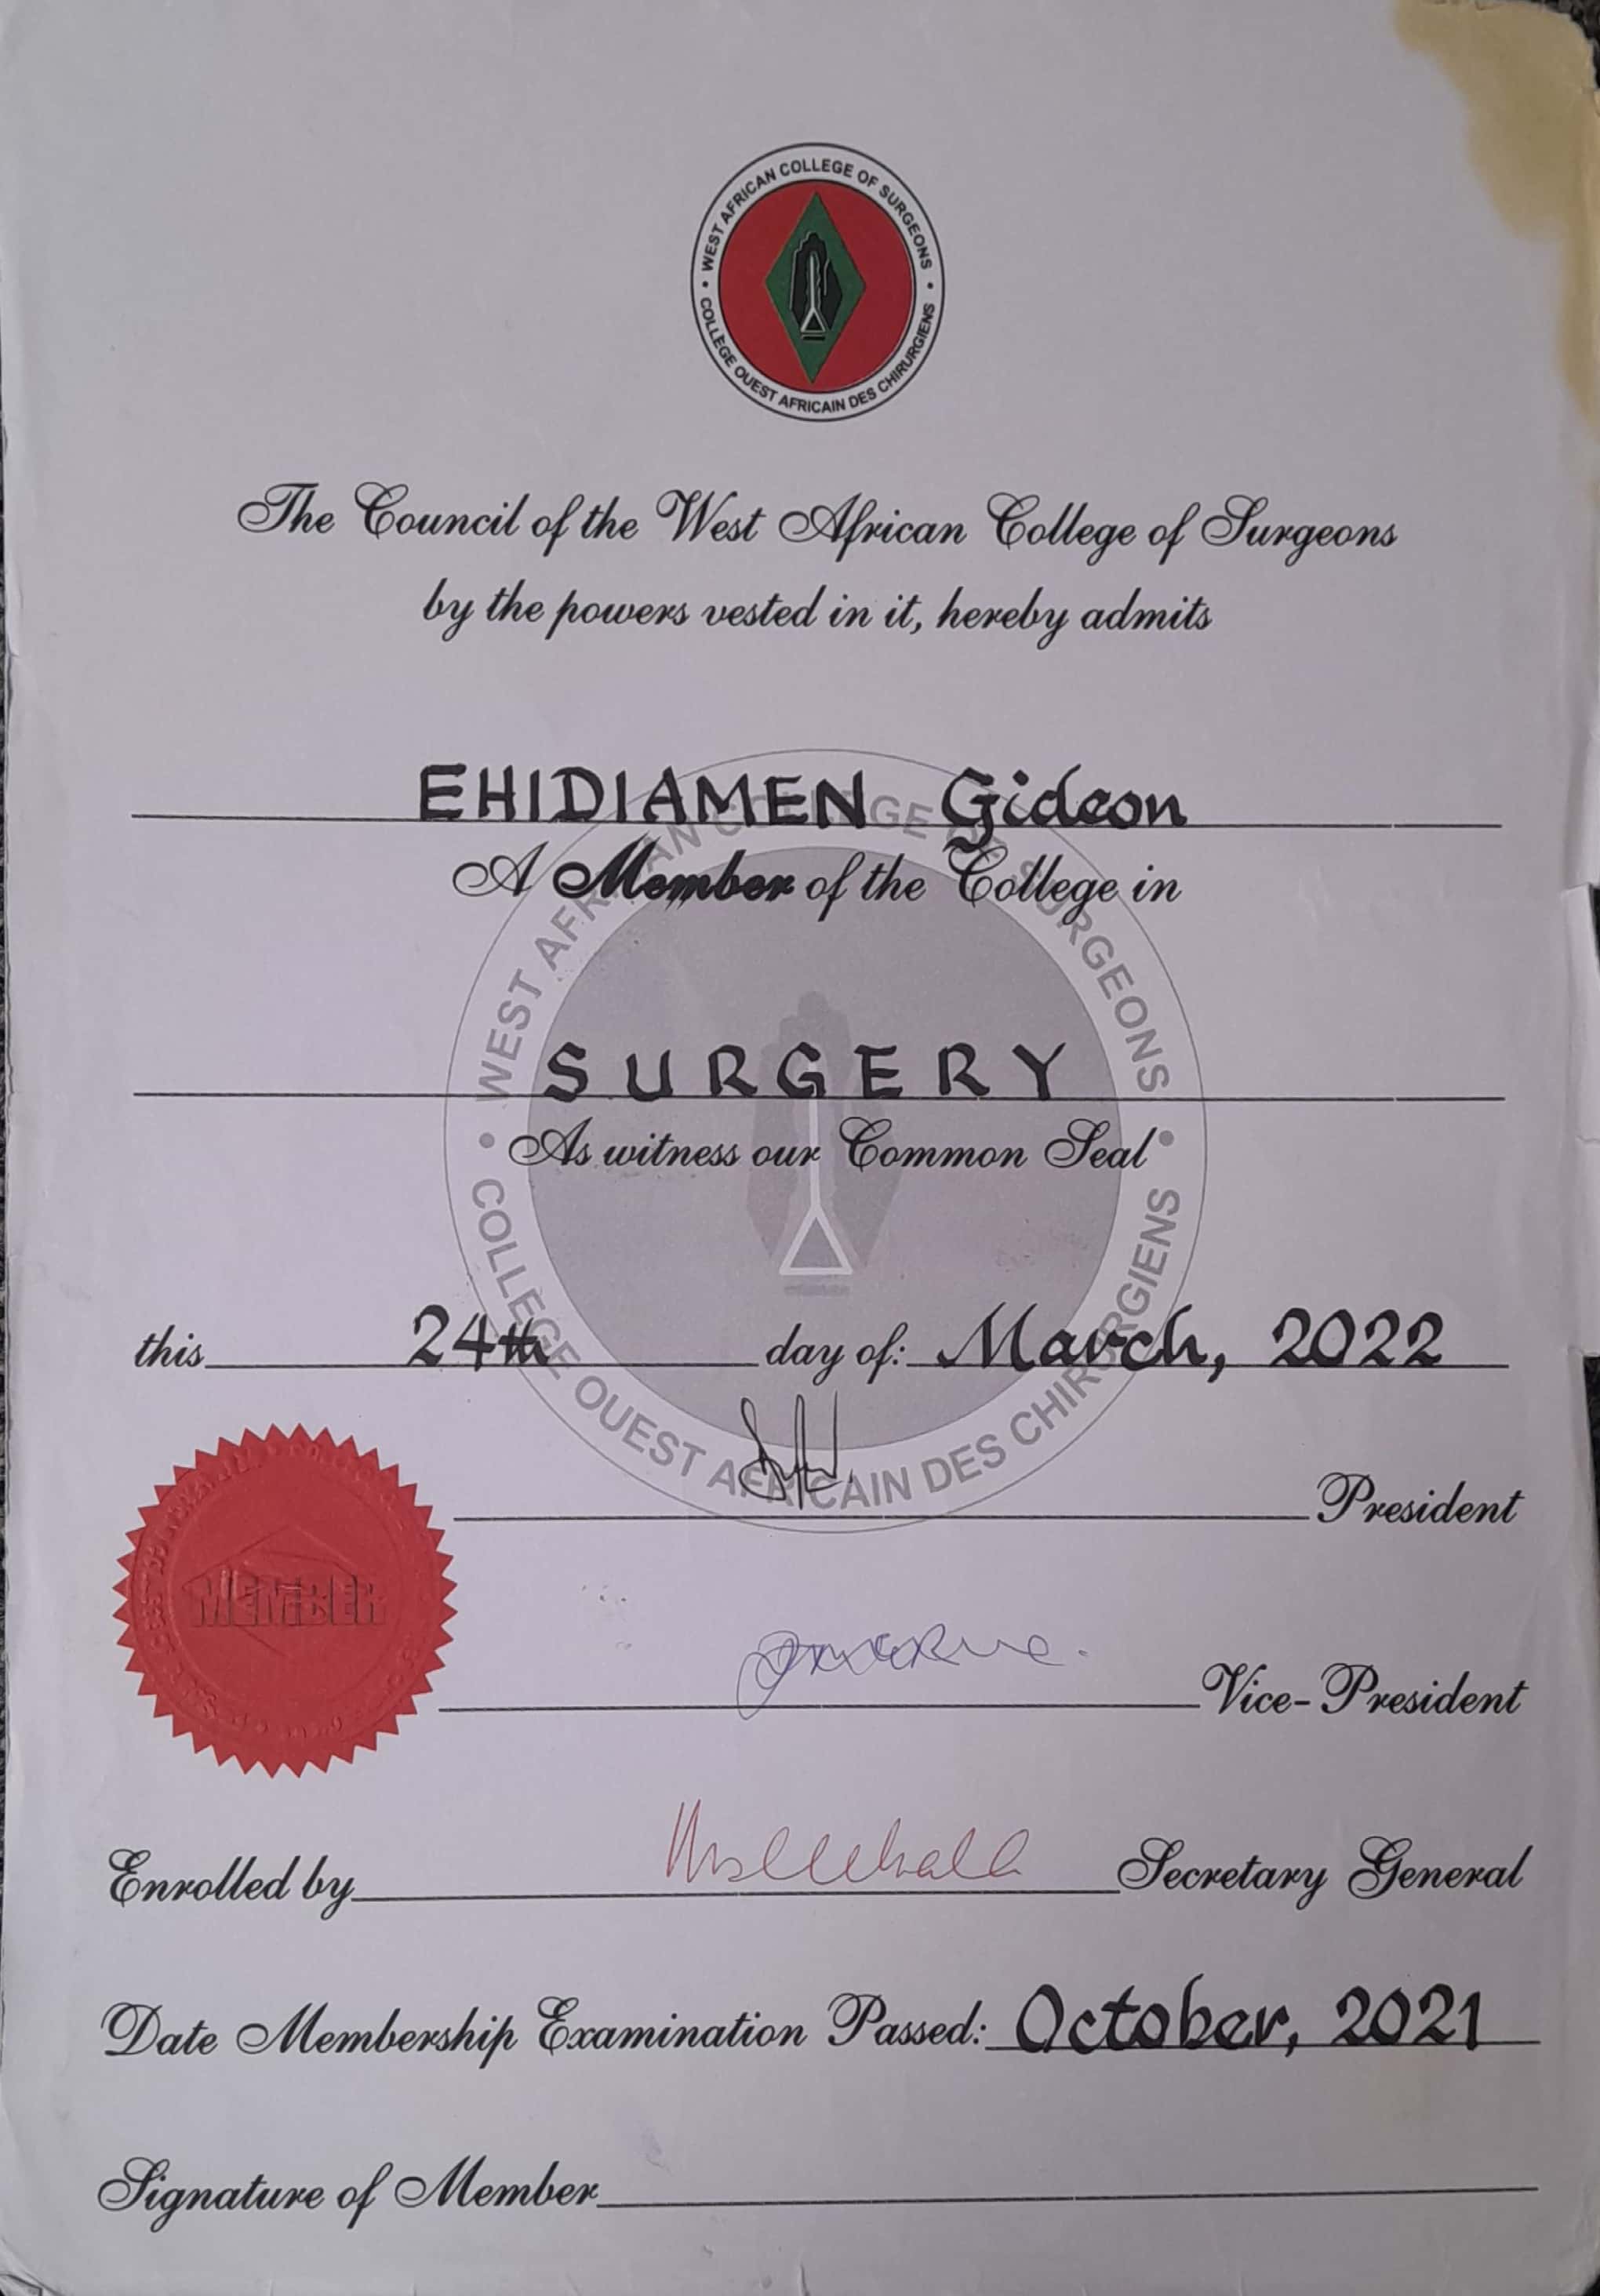 WEST AFRICAN COLLEGE OF SURGEONS
COLLEGE OUEST AFRICAIN DES CHIRURGIENS
The Council of the West African College of Surgeons
by the powers vested in it, hereby admits
EHIDIAMEN Gideon
A Member of the College in
SURGERY
As witness our Common Seal
WEST AFRICAN COLLEGE OF SURGEONS
COLLEGE OUEST AFRICAIN DES CHIRURGIENS
this 24th day of: March, 2022
President
MEMBER
Vice-President
Enrolled by Secretary General
Date Membership Examination Passed: October, 2021
Signature of Member